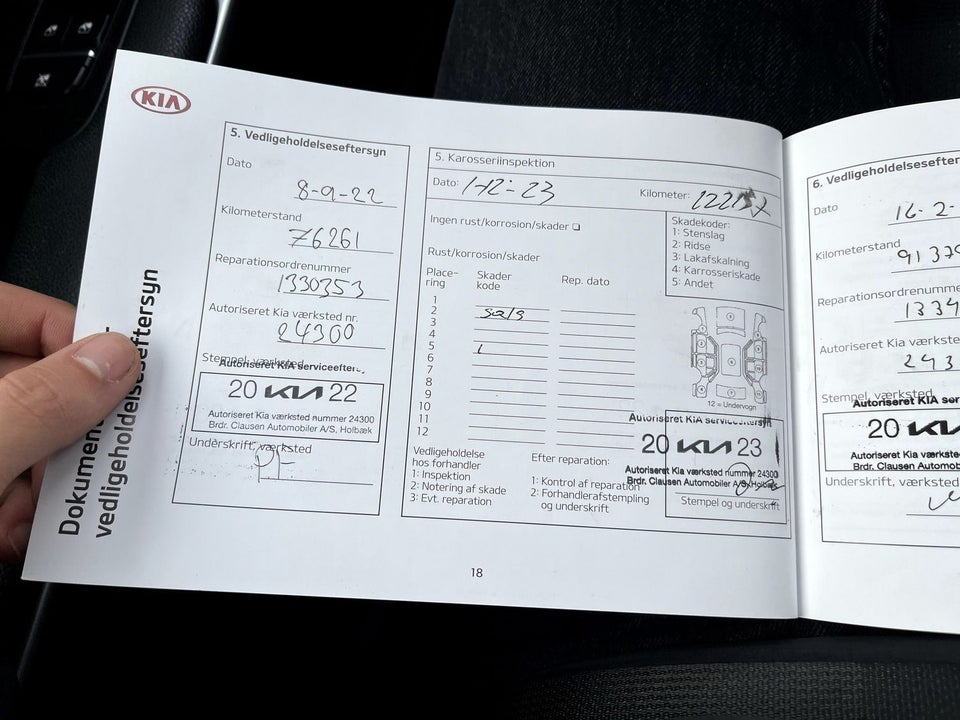 KIA
Dokument
vedligeholdelseseftersyn
5. Vedligeholdelseseftersyn
Dato
8-9-22
Kilometerstand
76261
Reparationsordrenummer
1330353
Autoriseret Kia værksted nr.
24300
Stempel, værksted
Autoriseret KIA serviceefter
20 KIA 22
Autoriseret Kia værksted nummer 24300
Brdr. Clausen Automobiler A/S, Holbæk
Underskrift, værksted
5. Karosseriinspektion
Dato: 1-12-23
Kilometer:
Ingen rust/korrosion/skader
Skadekoder:
1: Stenslag
2: Ridse
3: Lakafskalning
4: Karrosseriskade
5: Andet
Rust/korrosion/skader
Place-
ring
Skader
kode
Rep. dato
1
2
3
4
5
6
7
8
9
10
11
12
12 = Undervogn
Vedligeholdelse
hos forhandler
1: Inspektion
2: Notering af skade
3: Evt. reparation
Efter reparation:
1: Kontrol af reparation
2: Forhandlerafstempling
og underskrift
Autoriseret KIA serviceeftersyn
20 KIA 23
Autoriseret Kia værksted nummer 24300
Brdr. Clausen Automobiler A/S, Holbæk
Stempel og underskrift
18
6. Vedligeholdelsesefter
Dato
16-2-
Kilometerstand
9137
Reparationsordrenumme
1334
Autoriseret Kia værkste
243
Stempel, værksted
Autoriseret KIA ser
20 KI
Autoriseret Kia værksted
Brdr. Clausen Automob
Underskrift, værksted